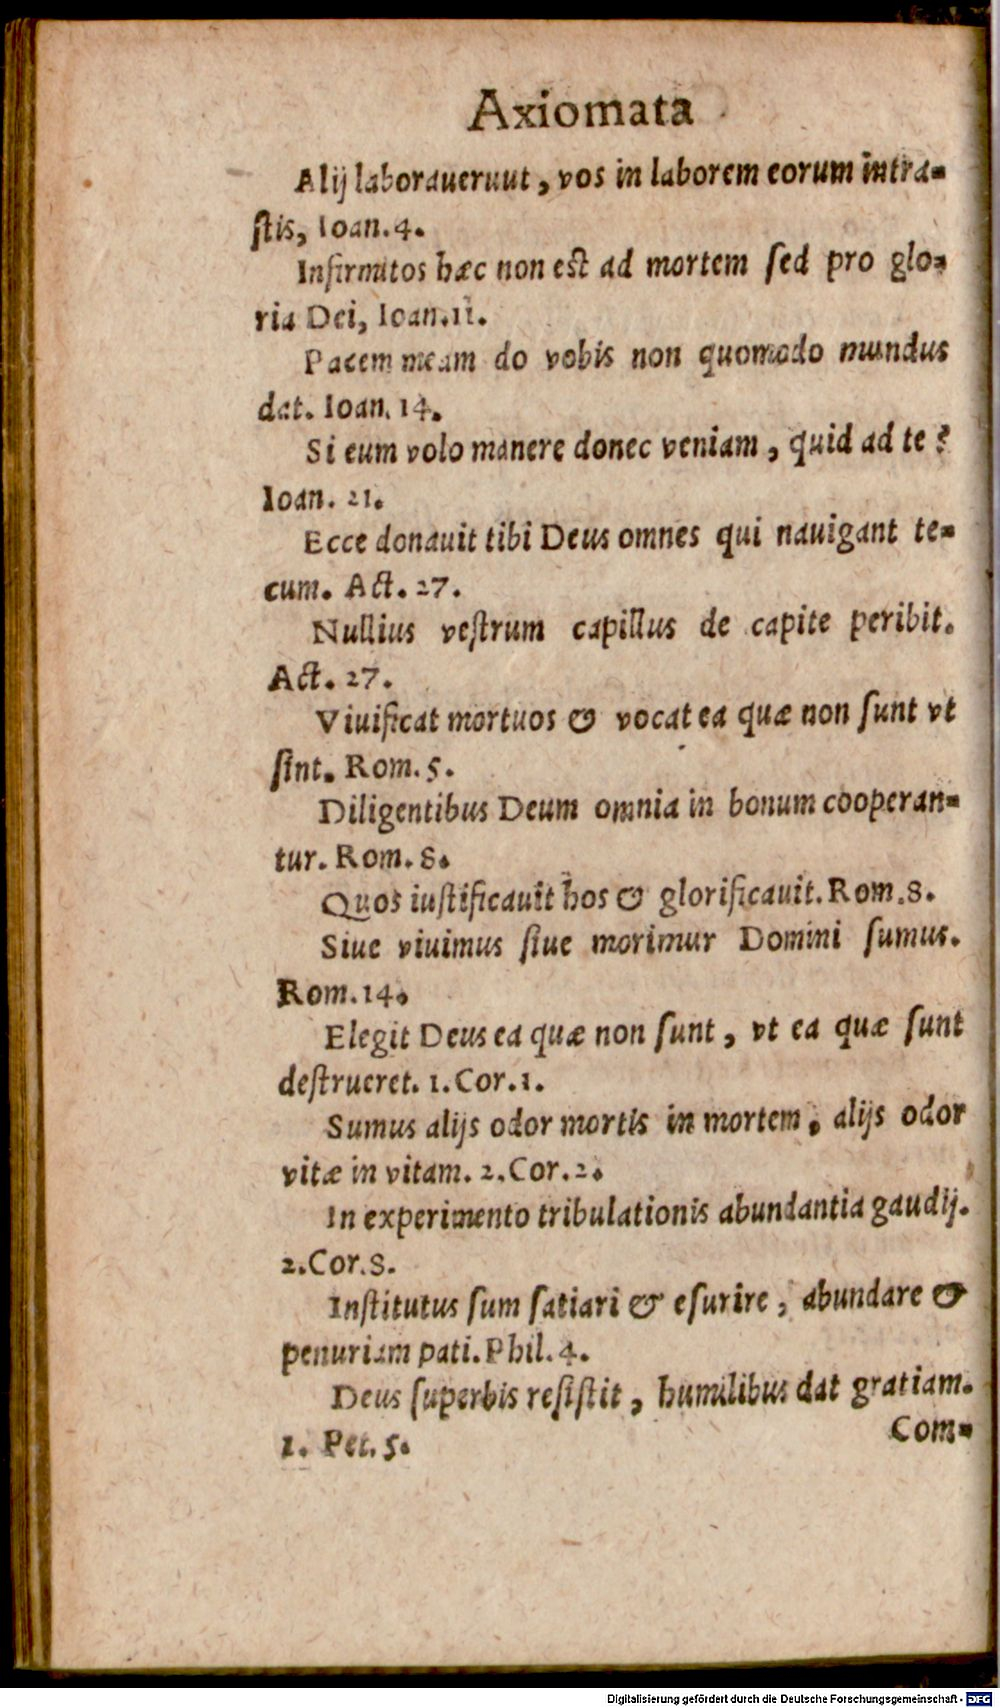 Axiomata
Alij laboraueruut, vos in laborem eorum intra-
stis, Ioan. 4.
Infirmitos hæc non est ad mortem sed pro glo-
ria Dei, Ioan. 11.
Pacem meam do vobis non quomodo mundus
dat. Ioan. 14.
Si eum volo manere donec veniam, quid ad te?
Ioan. 21.
Ecce donauit tibi Deus omnes qui nauigant te-
cum. Act. 27.
Nullius vestrum capillus de capite peribit.
Act. 27.
Viuificat mortuos & vocat ea quæ non sunt vt
sint. Rom. 5.
Diligentibus Deum omnia in bonum cooperan-
tur. Rom. 8.
Quos iustificauit hos & glorificauit. Rom. 8.
Siue viuimus siue morimur Domini sumus.
Rom. 14.
Elegit Deus ea quæ non sunt, vt ea quæ sunt
destrueret. 1. Cor. 1.
Sumus alijs odor mortis in mortem, alijs odor
vitæ in vitam. 2. Cor. 2.
In experimento tribulationis abundantia gaudij.
2. Cor. 8.
Institutus sum satiari & esurire, abundare &
penuriam pati. Phil. 4.
Deus superbis resistit, humilibus dat gratiam.
1. Pet. 5.
Com-
Digitalisierung gefördert durch die Deutsche Forschungsgemeinschaft - DFG